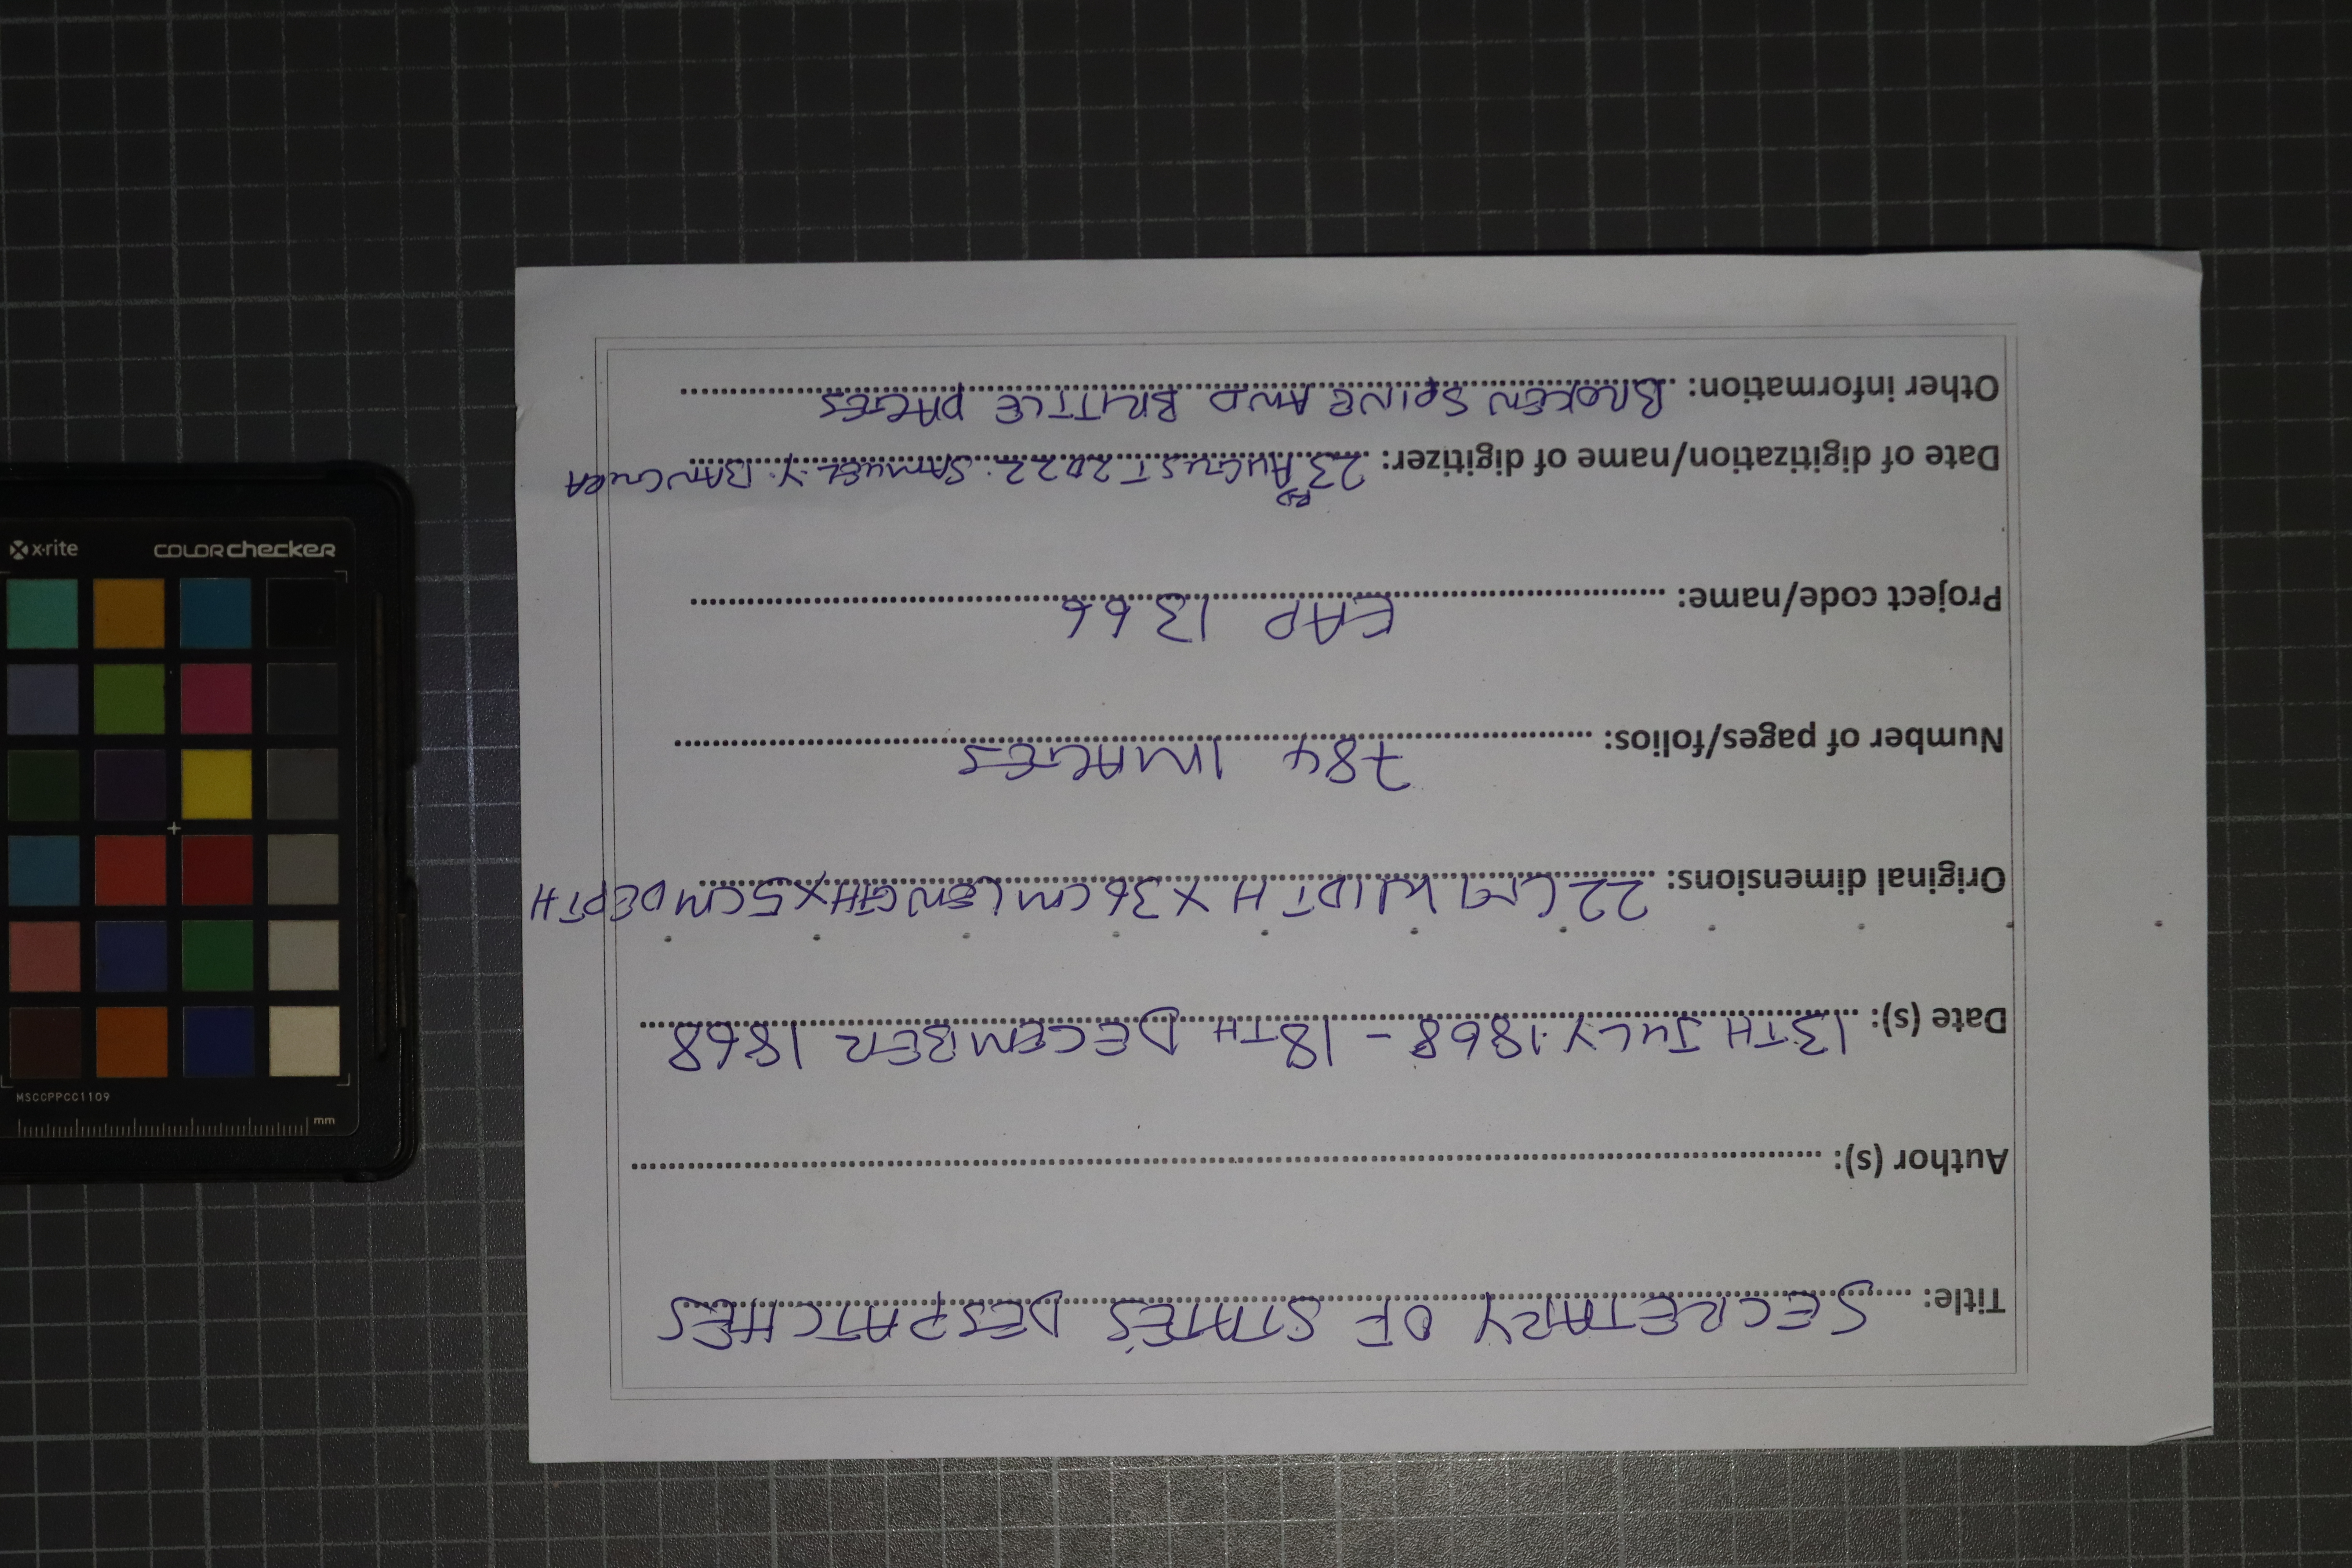 Title: SECRETARY OF STATE'S DESPATCHES
Author (s):
Date (s): 13TH JULY 1868 - 18TH DECEMBER 1868
Original dimensions: 22CM WIDTH X 36CM LENGTH X 5CM DEPTH
Number of pages/folios: 784 IMAGES
Project code/name: EAP 1366
Date of digitization/name/name of digitizer: 23RD AUGUST 2022 SAMUEL Y. BANGURA
Other information: BROKEN SPINE AND BRITTLE PAGES
x·rite colorchecker
MSCCPPCC1109
mm